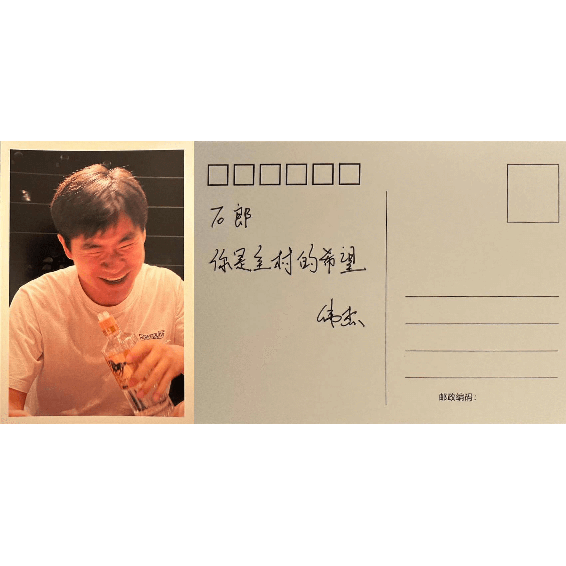 石郎
你是全村的希望
伟杰
邮政编码：